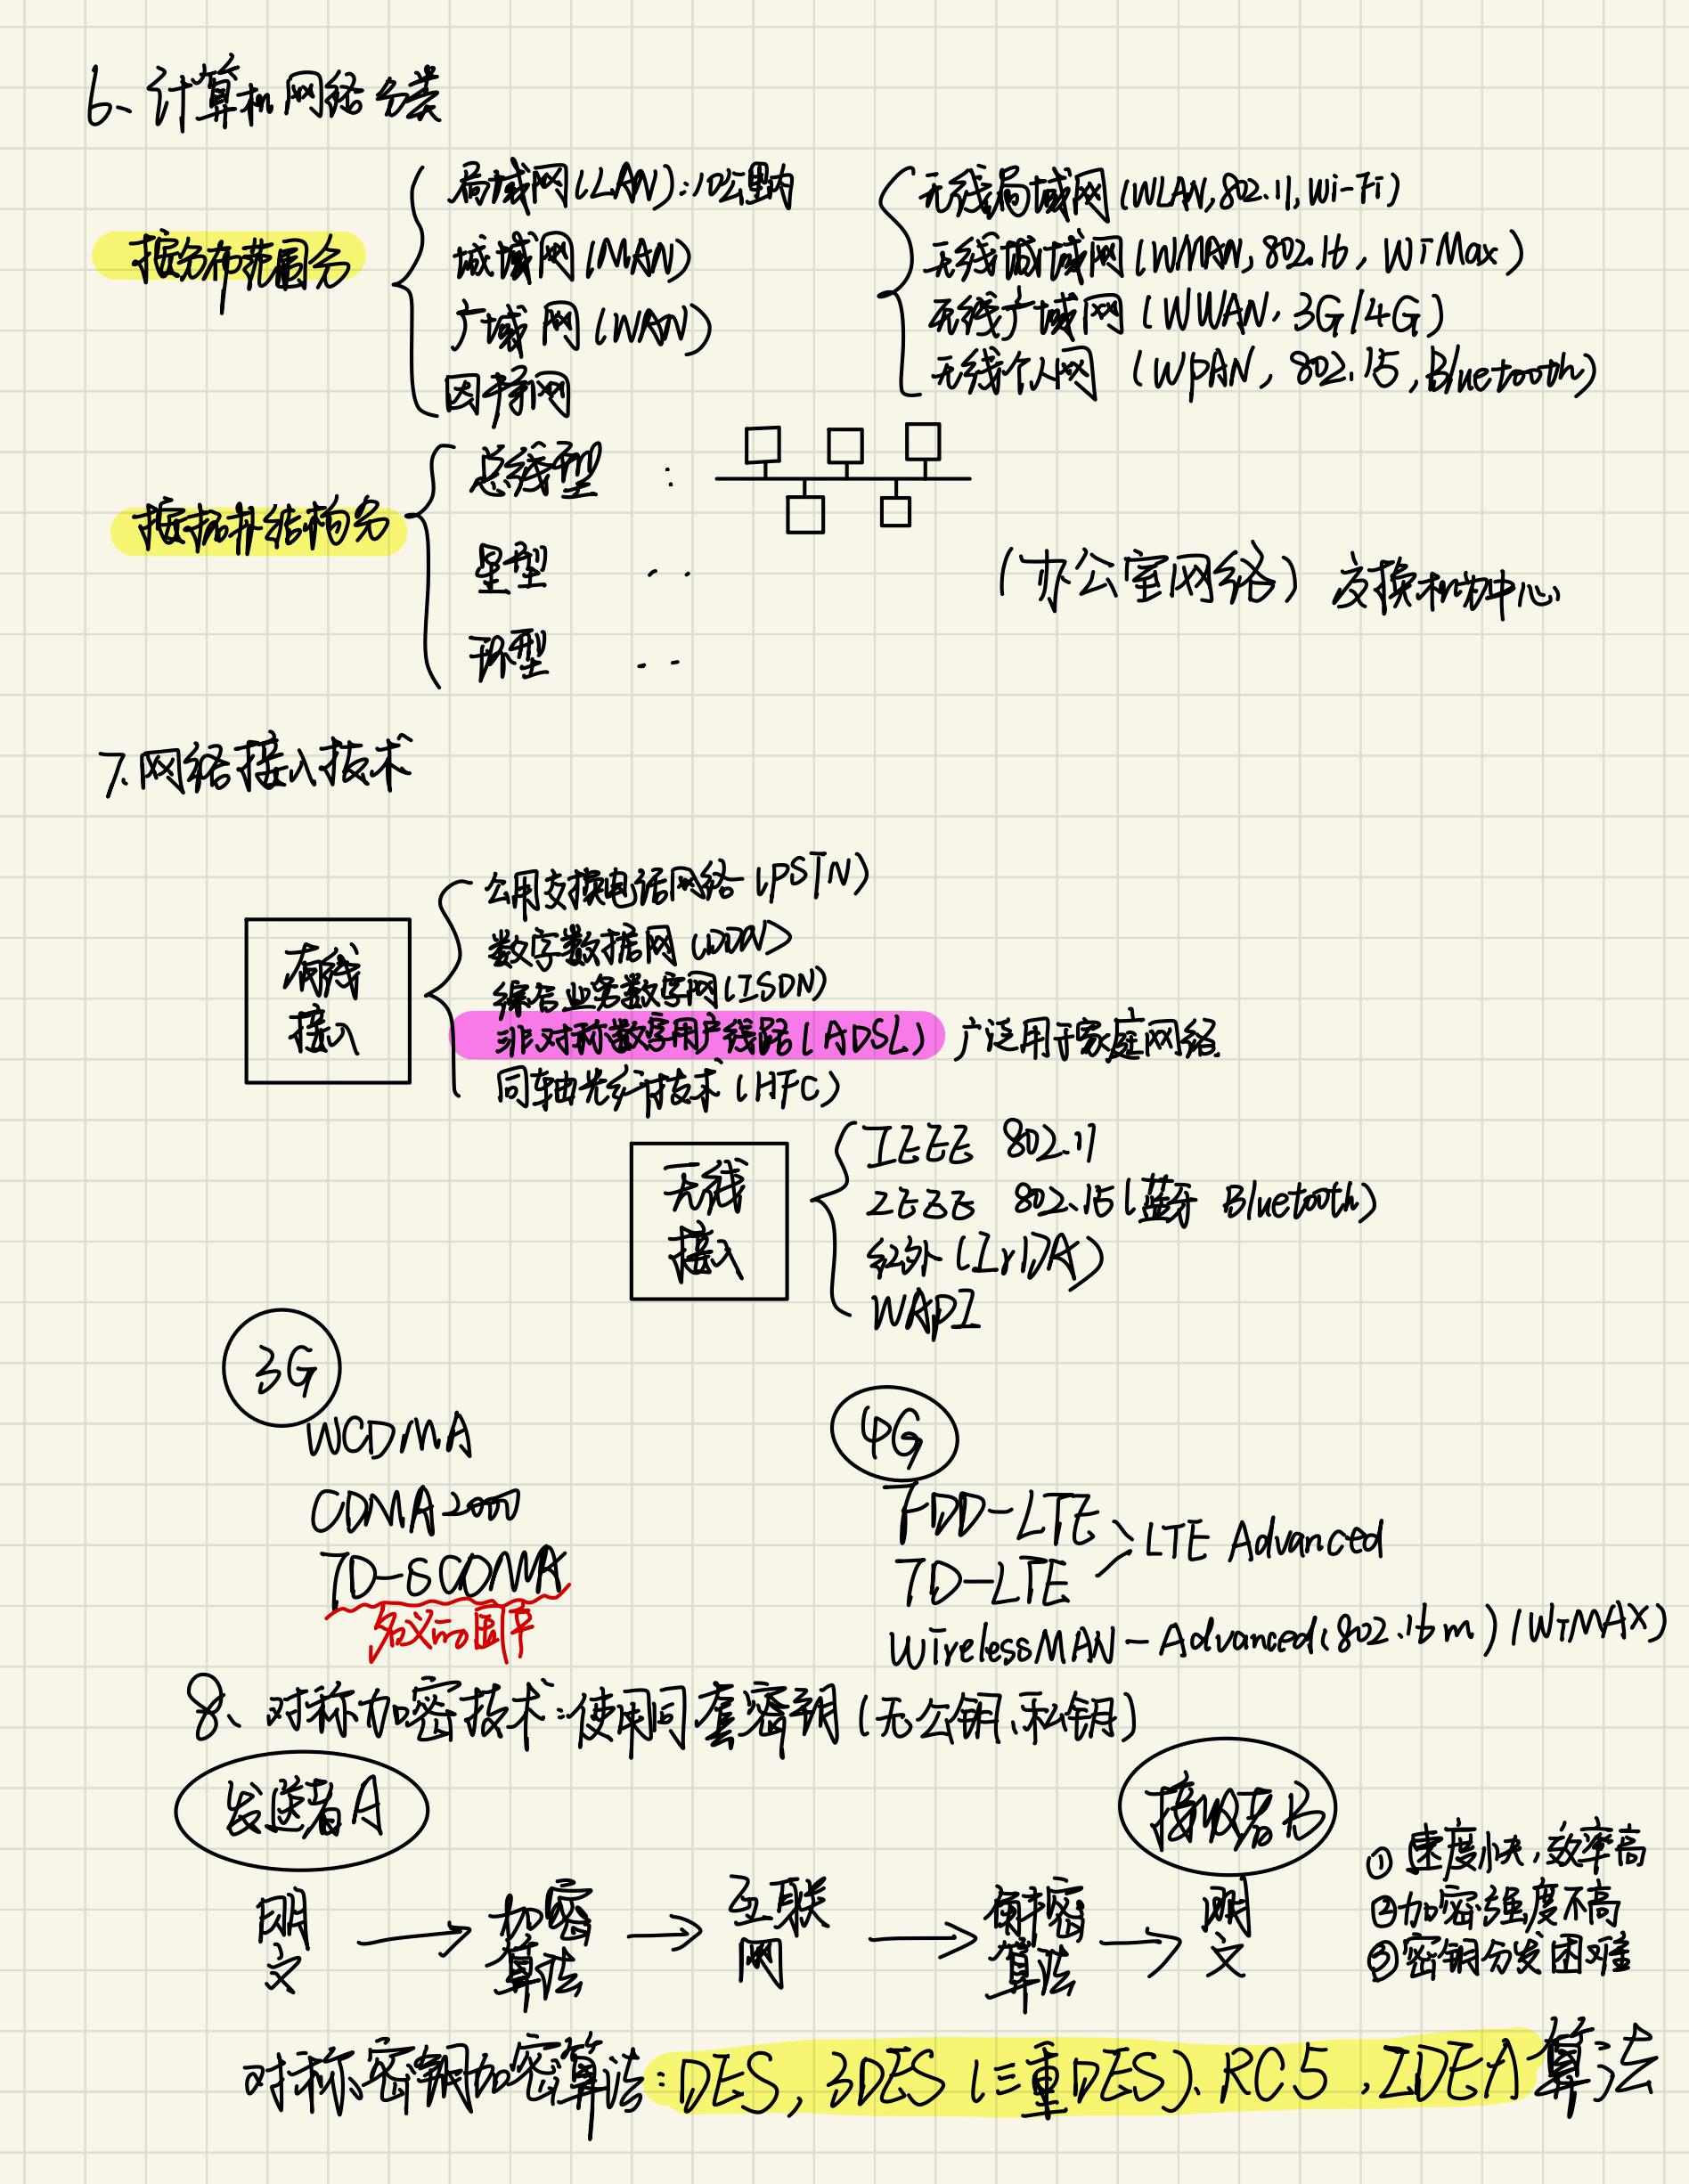 6、计算机网络分类
按分布范围分
局域网(LAN):10公里内
城域网(MAN)
广域网(WAN)
因特网
无线局域网(WLAN,802.11,Wi-Fi)
无线城域网(WMAN,802.16,WiMax)
无线广域网(WWAN,3G/4G)
无线个人网(WPAN,802.15,Bluetooth)
按拓扑结构分
总线型:
星型 ..
(办公室网络) 交换机为中心
环型 ..
7.网络接入技术
有线
接入
公用交换电话网络(PSTN)
数字数据网(DDN)
综合业务数字网(ISDN)
非对称数字用户线路(ADSL) 广泛用于家庭网络
同轴光纤技术(HFC)
无线
接入
IEEE 802.11
IEEE 802.15(蓝牙 Bluetooth)
红外(IrDA)
WAPI
3G
WCDMA
CDMA2000
TD-SCDMA
名义的国
4G
FDD-LTE
TD-LTE
LTE Advanced
WirelessMAN-Advanced(802.16m)(WiMAX)
8、对称加密技术:使用同套密钥(无公钥、私钥)
发送者A
接收者B
明文
加密算法
互联网
解密算法
明文
①速度快,效率高
②加密强度不高
③密钥分发困难
对称密钥加密算法:DES,3DES(三重DES)、RC5,IDEA算法